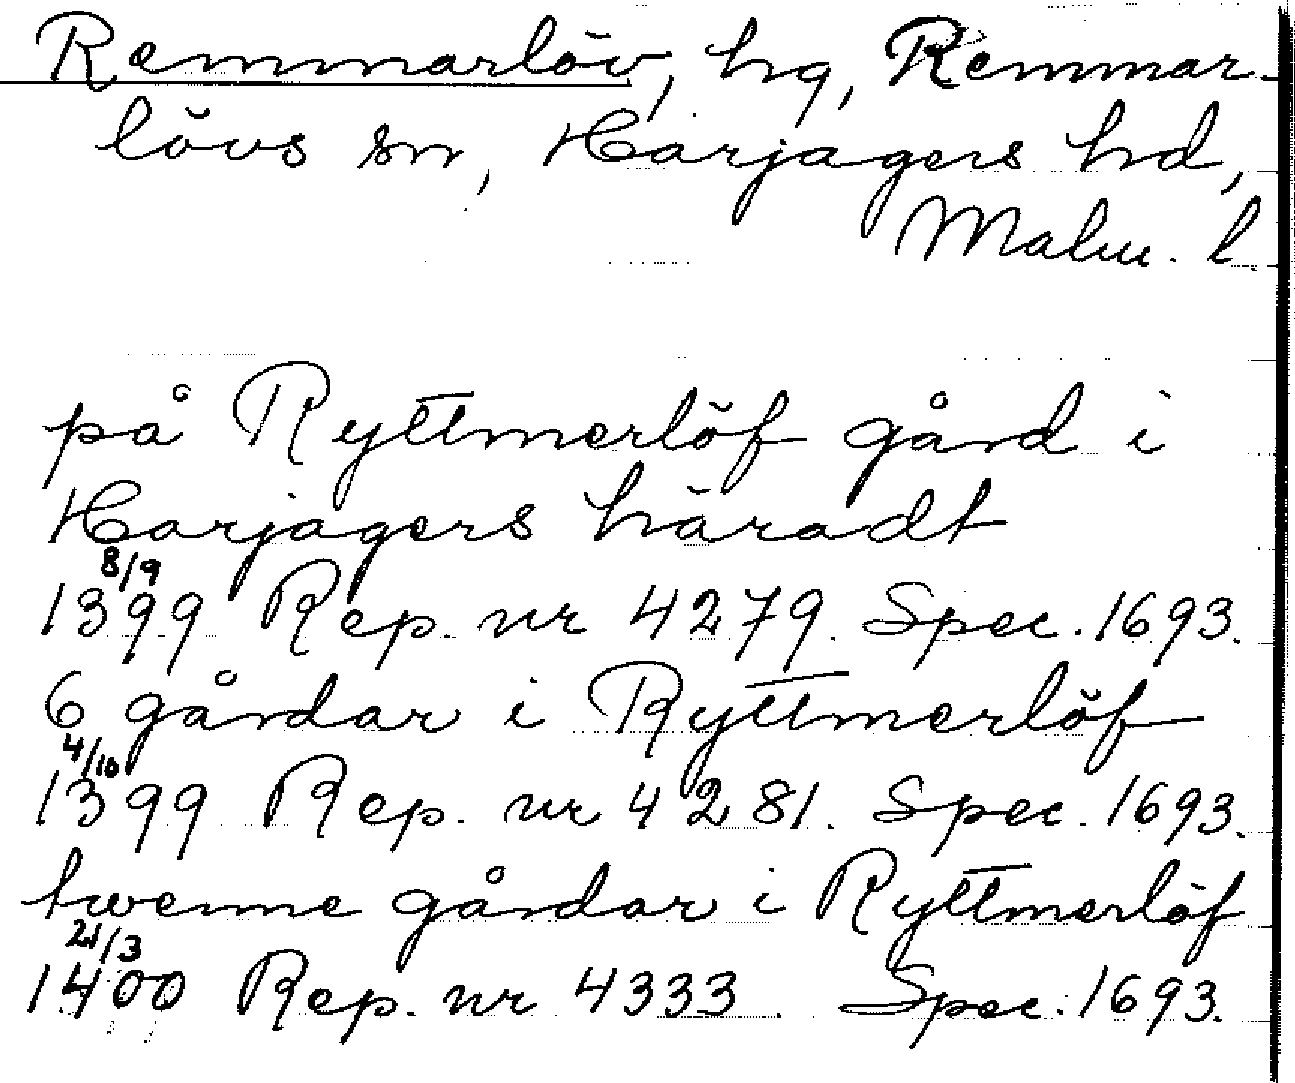 Remmarlöv, hg, Remmar-
lövs sn, Harjagers hd,
Malm. l.
på Ryttmerlöf gård i
Harjagers häradt
8/9
1399 Rep. nr 4279. Spec. 1693.
6 gårdar i Ryttmerlöf
4/10
1399 Rep. nr 4281. Spec. 1693.
twenne gårdar i Ryttmerlöf
21/3
1400 Rep. nr 4333. Spec. 1693.